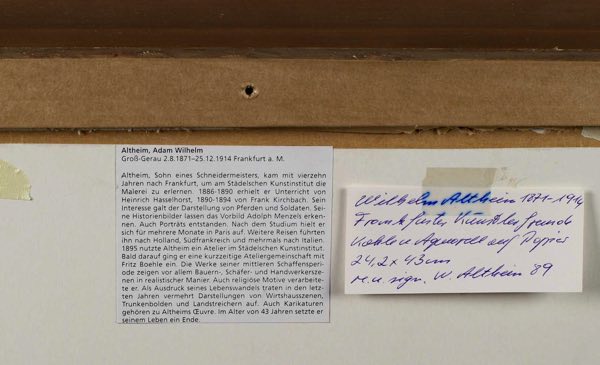 Altheim, Adam Wilhelm
Groß-Gerau 2.8.1871–25.12.1914 Frankfurt a. M.
Altheim, Sohn eines Schneidermeisters, kam mit vierzehn
Jahren nach Frankfurt, um am Städelschen Kunstinstitut die
Malerei zu erlernen. 1886-1890 erhielt er Unterricht von
Heinrich Hasselhorst, 1890-1894 von Frank Kirchbach. Sein
Interesse galt der Darstellung von Pferden und Soldaten. Sei-
ne Historienbilder lassen das Vorbild Adolph Menzels erken-
nen. Auch Porträts entstanden. Nach dem Studium hielt er
sich für mehrere Monate in Paris auf. Weitere Reisen führten
ihn nach Holland, Südfrankreich und mehrmals nach Italien.
1895 nutzte Altheim ein Atelier im Städelschen Kunstinstitut.
Bald darauf ging er eine kurzzeitige Ateliergemeinschaft mit
Fritz Boehle ein. Die Werke seiner mittleren Schaffensperi-
ode zeigen vor allem Bauern-, Schäfer- und Handwerkersze-
nen in realistischer Manier. Auch religiöse Motive verarbeite-
te er. Als Ausdruck seines Lebenswandels traten in den letz-
ten Jahren vermehrt Darstellungen von Wirtshausszenen,
Trunkenbolden und Landstreichern auf. Auch Karikaturen
gehören zu Altheims Œuvre. Im Alter von 43 Jahren setzte er
seinem Leben ein Ende.
Wilhelm Altheim 1871-1914
Frankfurter Künstlerfreund
Kohle u Aquarell auf Papier
24,2 x 43 cm
r.u. sign. W. Altheim '89